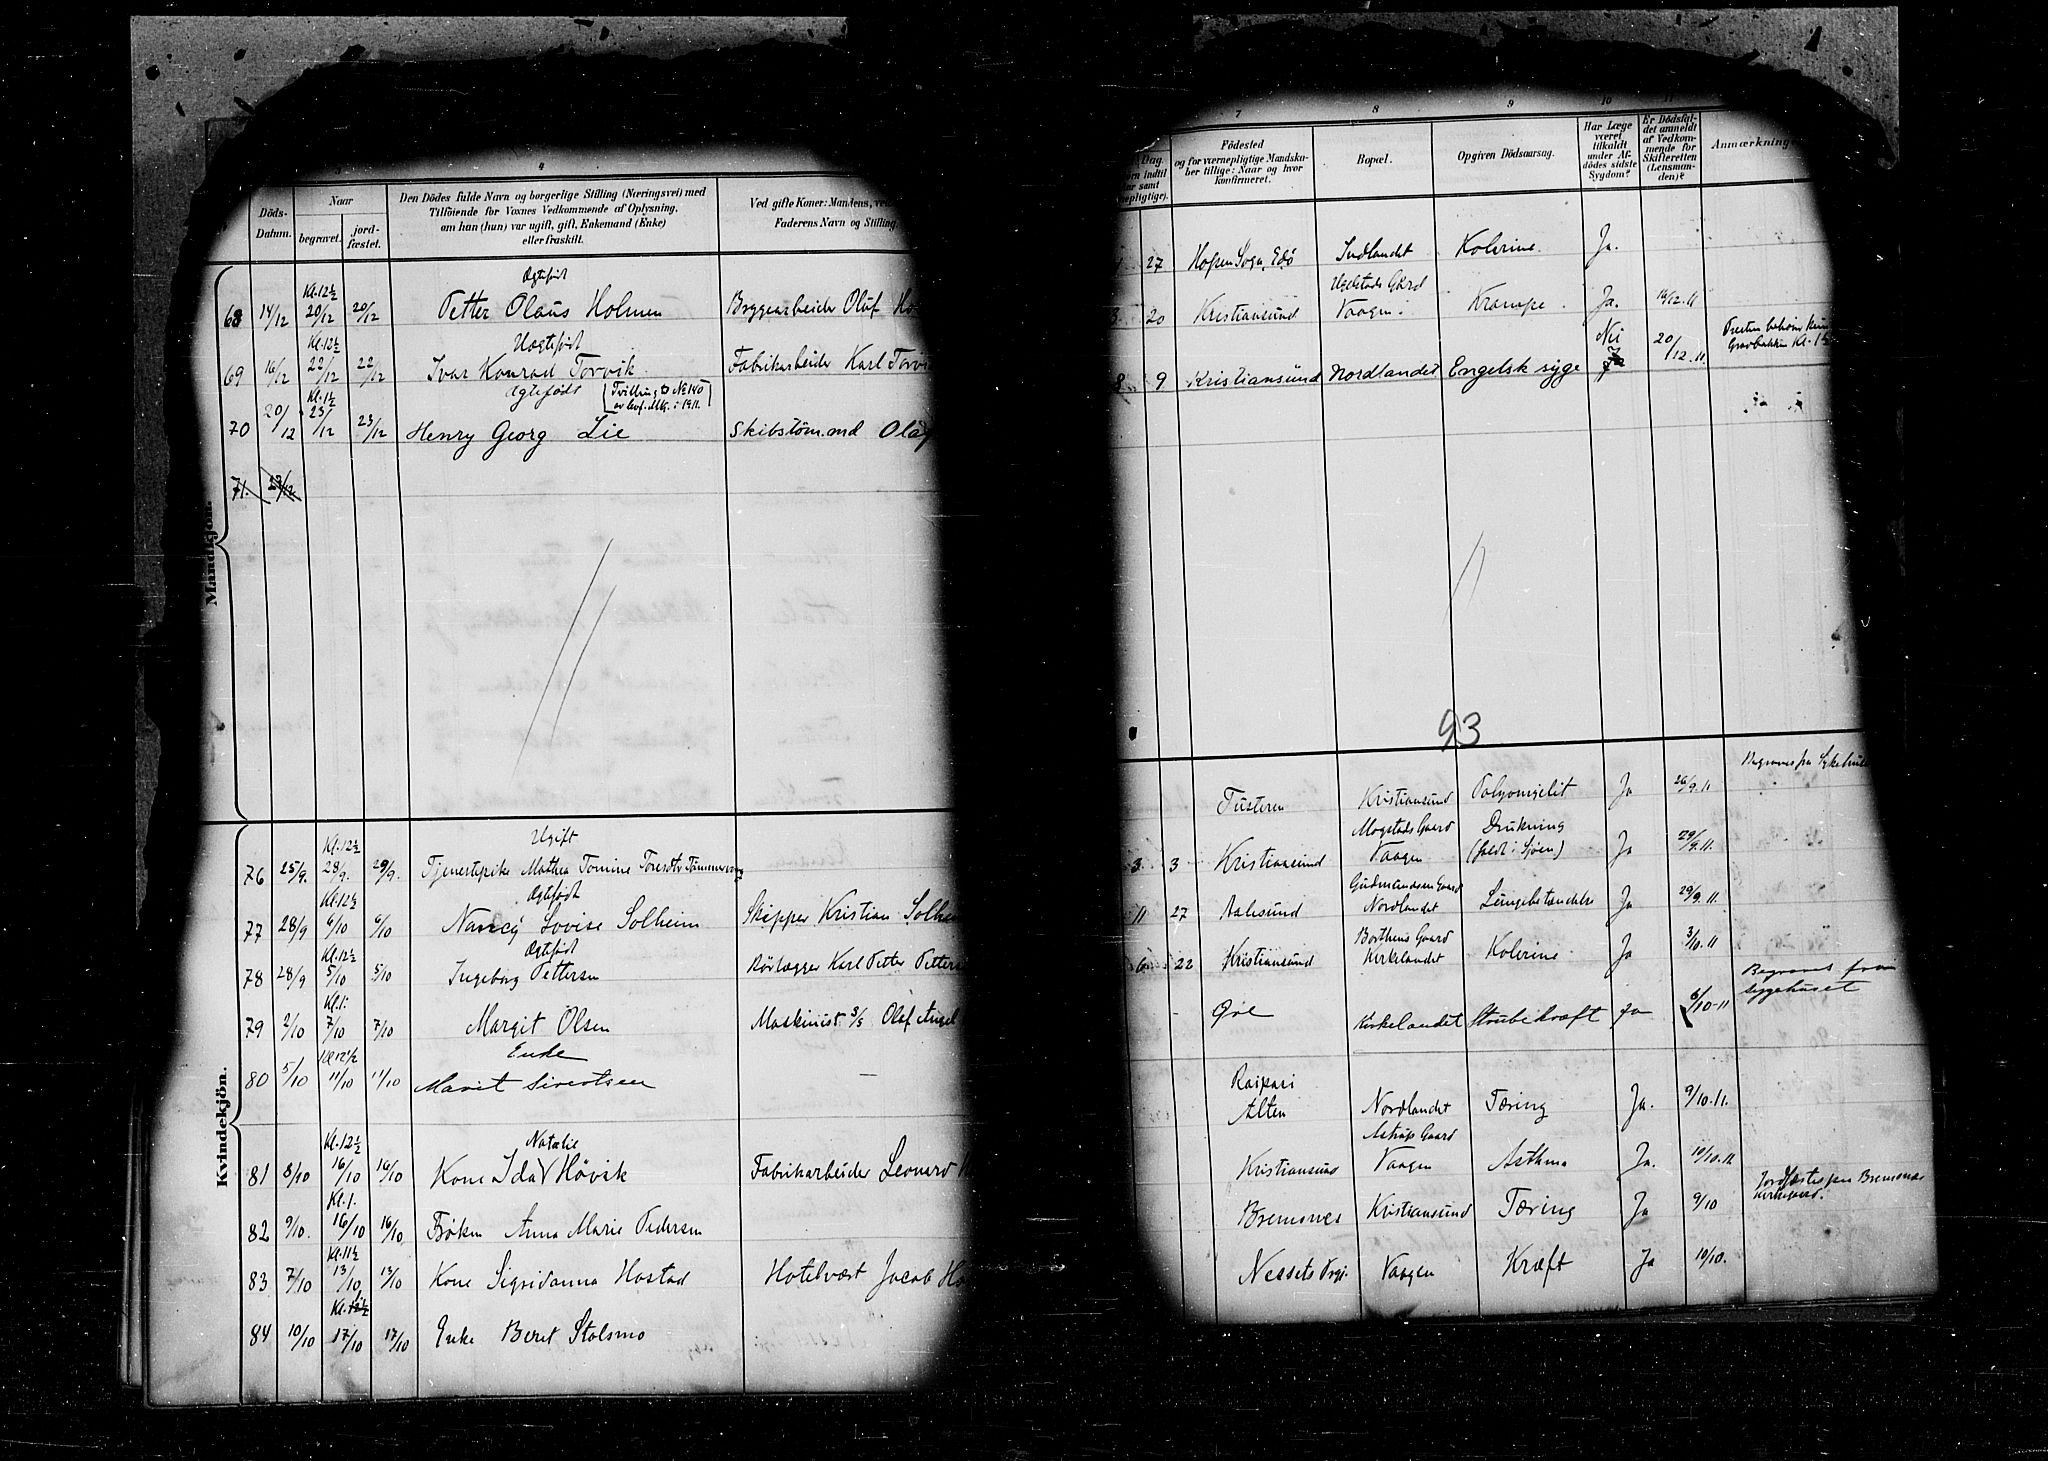 4
Döds-
Datum.
Naar
begravet.
jord-
fæstet.
Den Dödes fulde Navn og borgerlige Stilling (Næringsvei) med
Tilföiende for Voxnes Vedkommende af Oplysning,
om han (hun) var ugift, gift, Enkemand (Enke)
eller fraskilt.
Ved gifte Koner: Mandens,
Faderens Navn og Stilling.
Mandkjön.
Ægtefødt
Kl. 12½
68 14/12 20/12 20/12 Petter Olaus Holmen Bryggearbeider Oluf
Kl. 12½ Uægtefød
69 16/12 22/12 22/12 Ivar Konrad Torvik Fabrikarbeider Karl
Kl. 1½ Ægtefødt
70 20/12 23/12 23/12 Henry Georg Lie Skibstøm.md
71. 23/12
Kvindekjön.
Ugift
Kl. 12½
76 25/9. 28/9. 29/9. Tjenestepike Mathea Tomine
Kl. 12½ Ægtefødt
77 28/9 6/10 6/10 Nancy Lovise Solheim Skipper Kristian
Kl. 12½ Ægtefødt
78 28/9 5/10 5/10 Ingeborg Pettersen Rørlægger Karl Petter
Kl. 1.
79 2/10 7/10 7/10 Margit Olsen Maskinist Olaf
Kl 12½ Enke
80 5/10 11/10 11/10 Marit Sivertsen —
Kl. 12½ Natalie
81 8/10 16/10 16/10 Kone Ida Høvik Fabrikarbeider Leonard
Kl. 1.
82 9/10. 16/10 16/10 Frøken Anna Marie Pedersen
Kl. 11½
83 7/10 13/10 13/10 Kone Sigridanna Hostad Hotelvært Jacob
84 10/10 17/10 17/10 Enke Beret Stolsmo
7
8
9
10
Dag.
Födested
og for værnepligtige Mandska-
ber tillige: Naar og hvor
konfirmeret.
Bopæl.
Opgiven Dödsaarsag.
Har Læge
været
tilkaldt
under Af-
dödes sidste
Sygdom?
Er Dödsfal-
det anmeldt
af Vedkom-
mende for
Skifteretten
(Lensman-
den)?
27 Indlandet Kolerine. Ja.
Gård
20 Kristiansund Vaagen. Krampe. Ja. 16/12.11
Nei
9 Kristiansund Nordlandet Engelsk syge 20/12.11.
93
Tusteren Kristiansund Ja 26/9.11
Mogstads Gaard Drukning
3 3 Kristiansund Vaagen (faldt i Sjøen) Ja 29/9.11.
Gudmundsen Gaard
11 27 Aalesund Nordlandet Lungebetændelse Ja 29/9.11.
Borthens Gaard
6 22 Kristiansund Kirkelandet Kolerine Ja 3/10.11
Begravet fra
sygehuset
- Øre Kirkelandet Strubekræft Ja 6/10-11
Raipas i
Alten Nordlandet Tæring Ja. 9/10.11.
Astrup Gaard
Kristiansund Vaagen Asthma Ja. 10/10.11.
Bremsnes Kristiansund Tæring Ja 9/10
Jordfæstes paa Bremsnes
Kirkegaard.
Nessets Vaagen Kræft Ja 10/10.